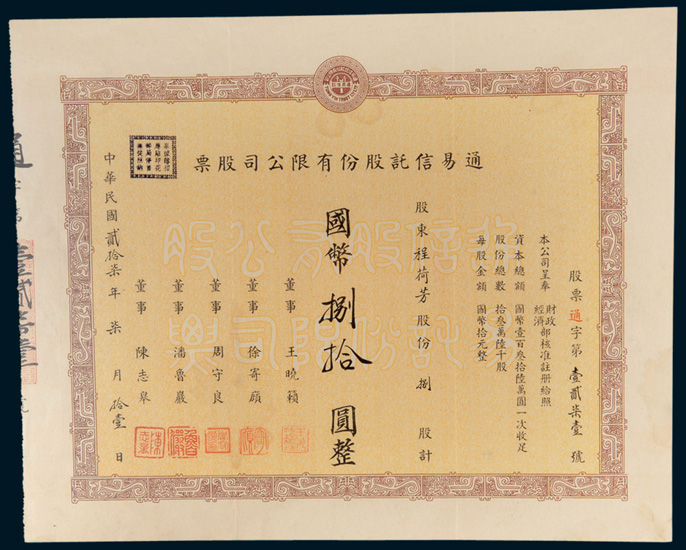 通易信託股份有限公司股票
股票通字第壹貳柒壹號
本公司呈奉財政經濟部核准註冊給照
資本總額國幣壹百叁拾陸萬圓一次收足
股份總數拾叁萬陸千股
每股金額國幣拾元整
股東程荷芳股份捌股計
國幣捌拾圓整
董事王曉籟
董事徐寄廎
董事周守良
董事潘魯巖
董事陳志皋
中華民國貳拾柒年柒月拾壹日